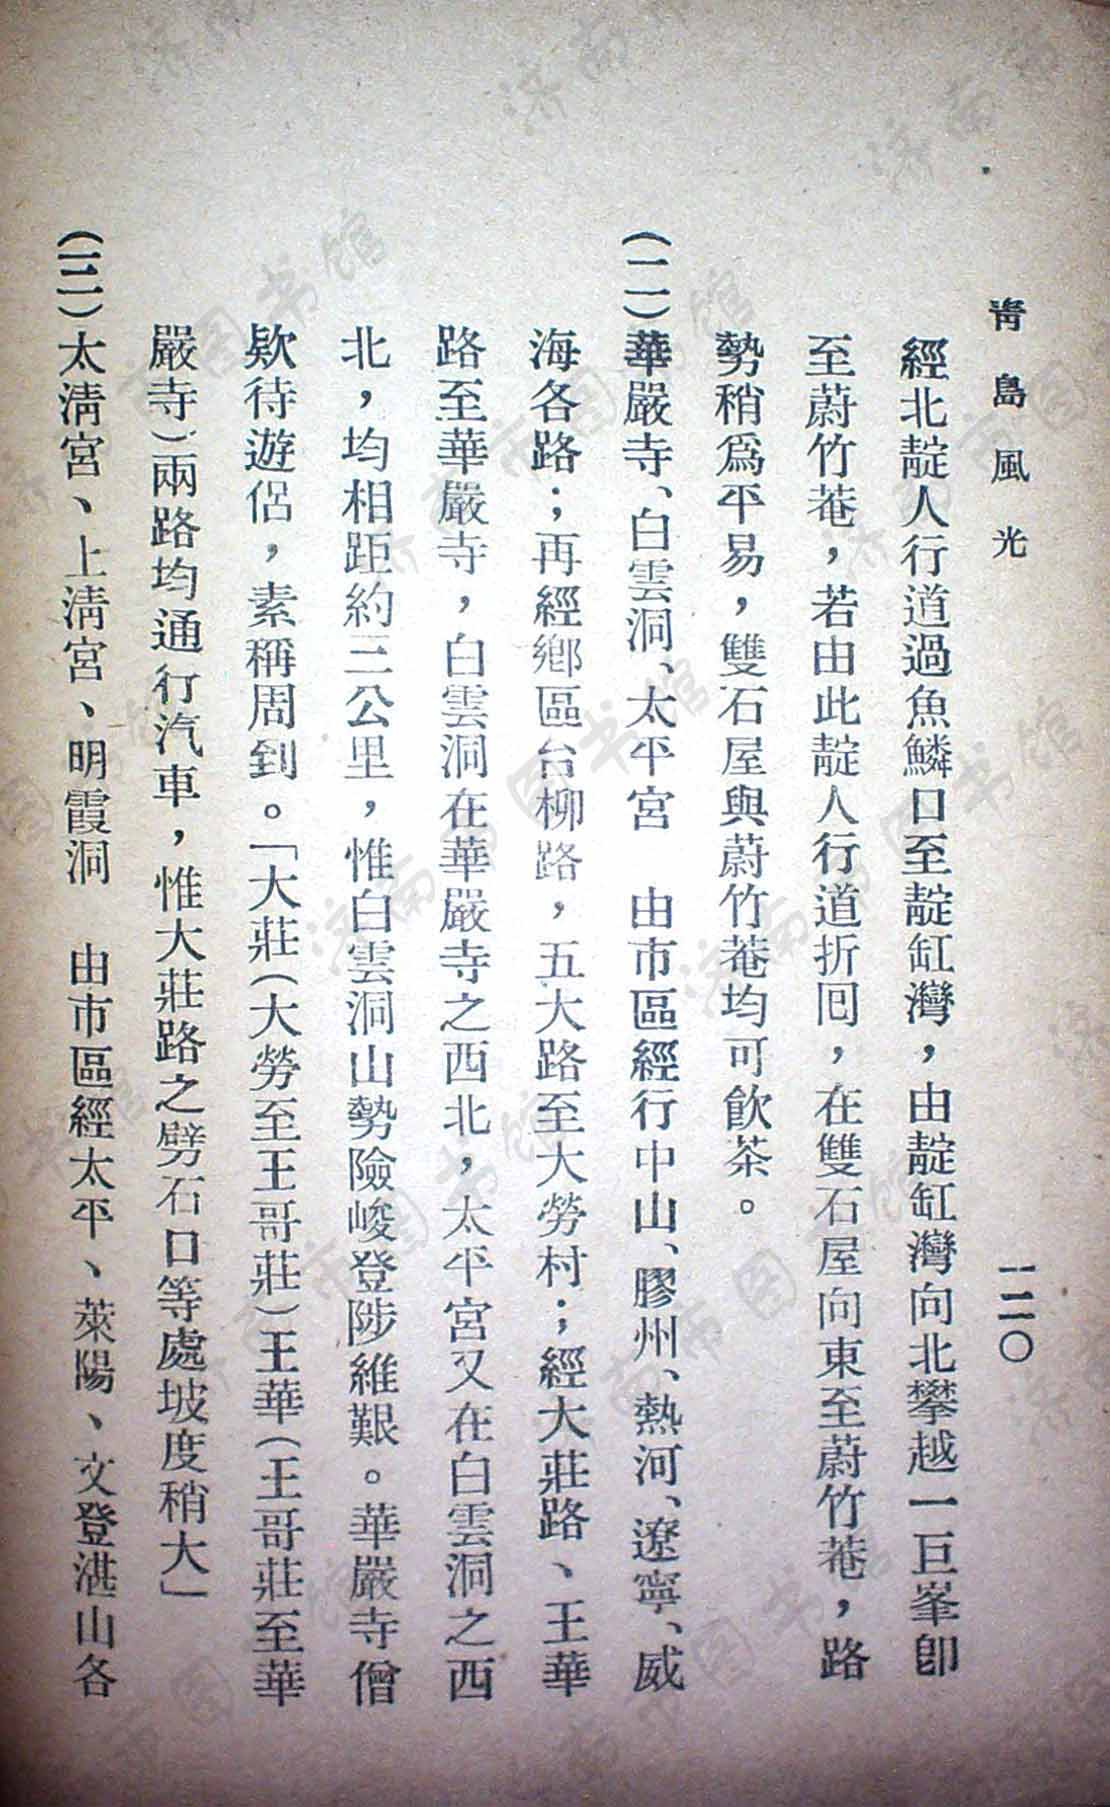 靑島風光
一二〇
經北靛人行道過魚鱗口至靛缸灣，由靛缸灣向北攀越一巨峯卽
至蔚竹菴，若由此靛人行道折囘，在雙石屋向東至蔚竹菴，路
勢稍爲平易，雙石屋與蔚竹菴均可飮茶。
(二)華嚴寺、白雲洞、太平宮　由市區經行中山、膠州、熱河、遼寧、威
海各路；再經鄉區台柳路，五大路至大勞村；經大莊路、王華
路至華嚴寺，白雲洞在華嚴寺之西北，太平宮又在白雲洞之西
北，均相距約三公里，惟白雲洞山勢險峻登陟維艱。華嚴寺僧
欵待遊侶，素稱周到。「大莊(大勞至王哥莊)王華(王哥莊至華
嚴寺)兩路均通行汽車，惟大莊路之劈石口等處坡度稍大」
(三)太淸宮、上淸宮、明霞洞　由市區經太平、萊陽、文登湛山各
济南市图书馆